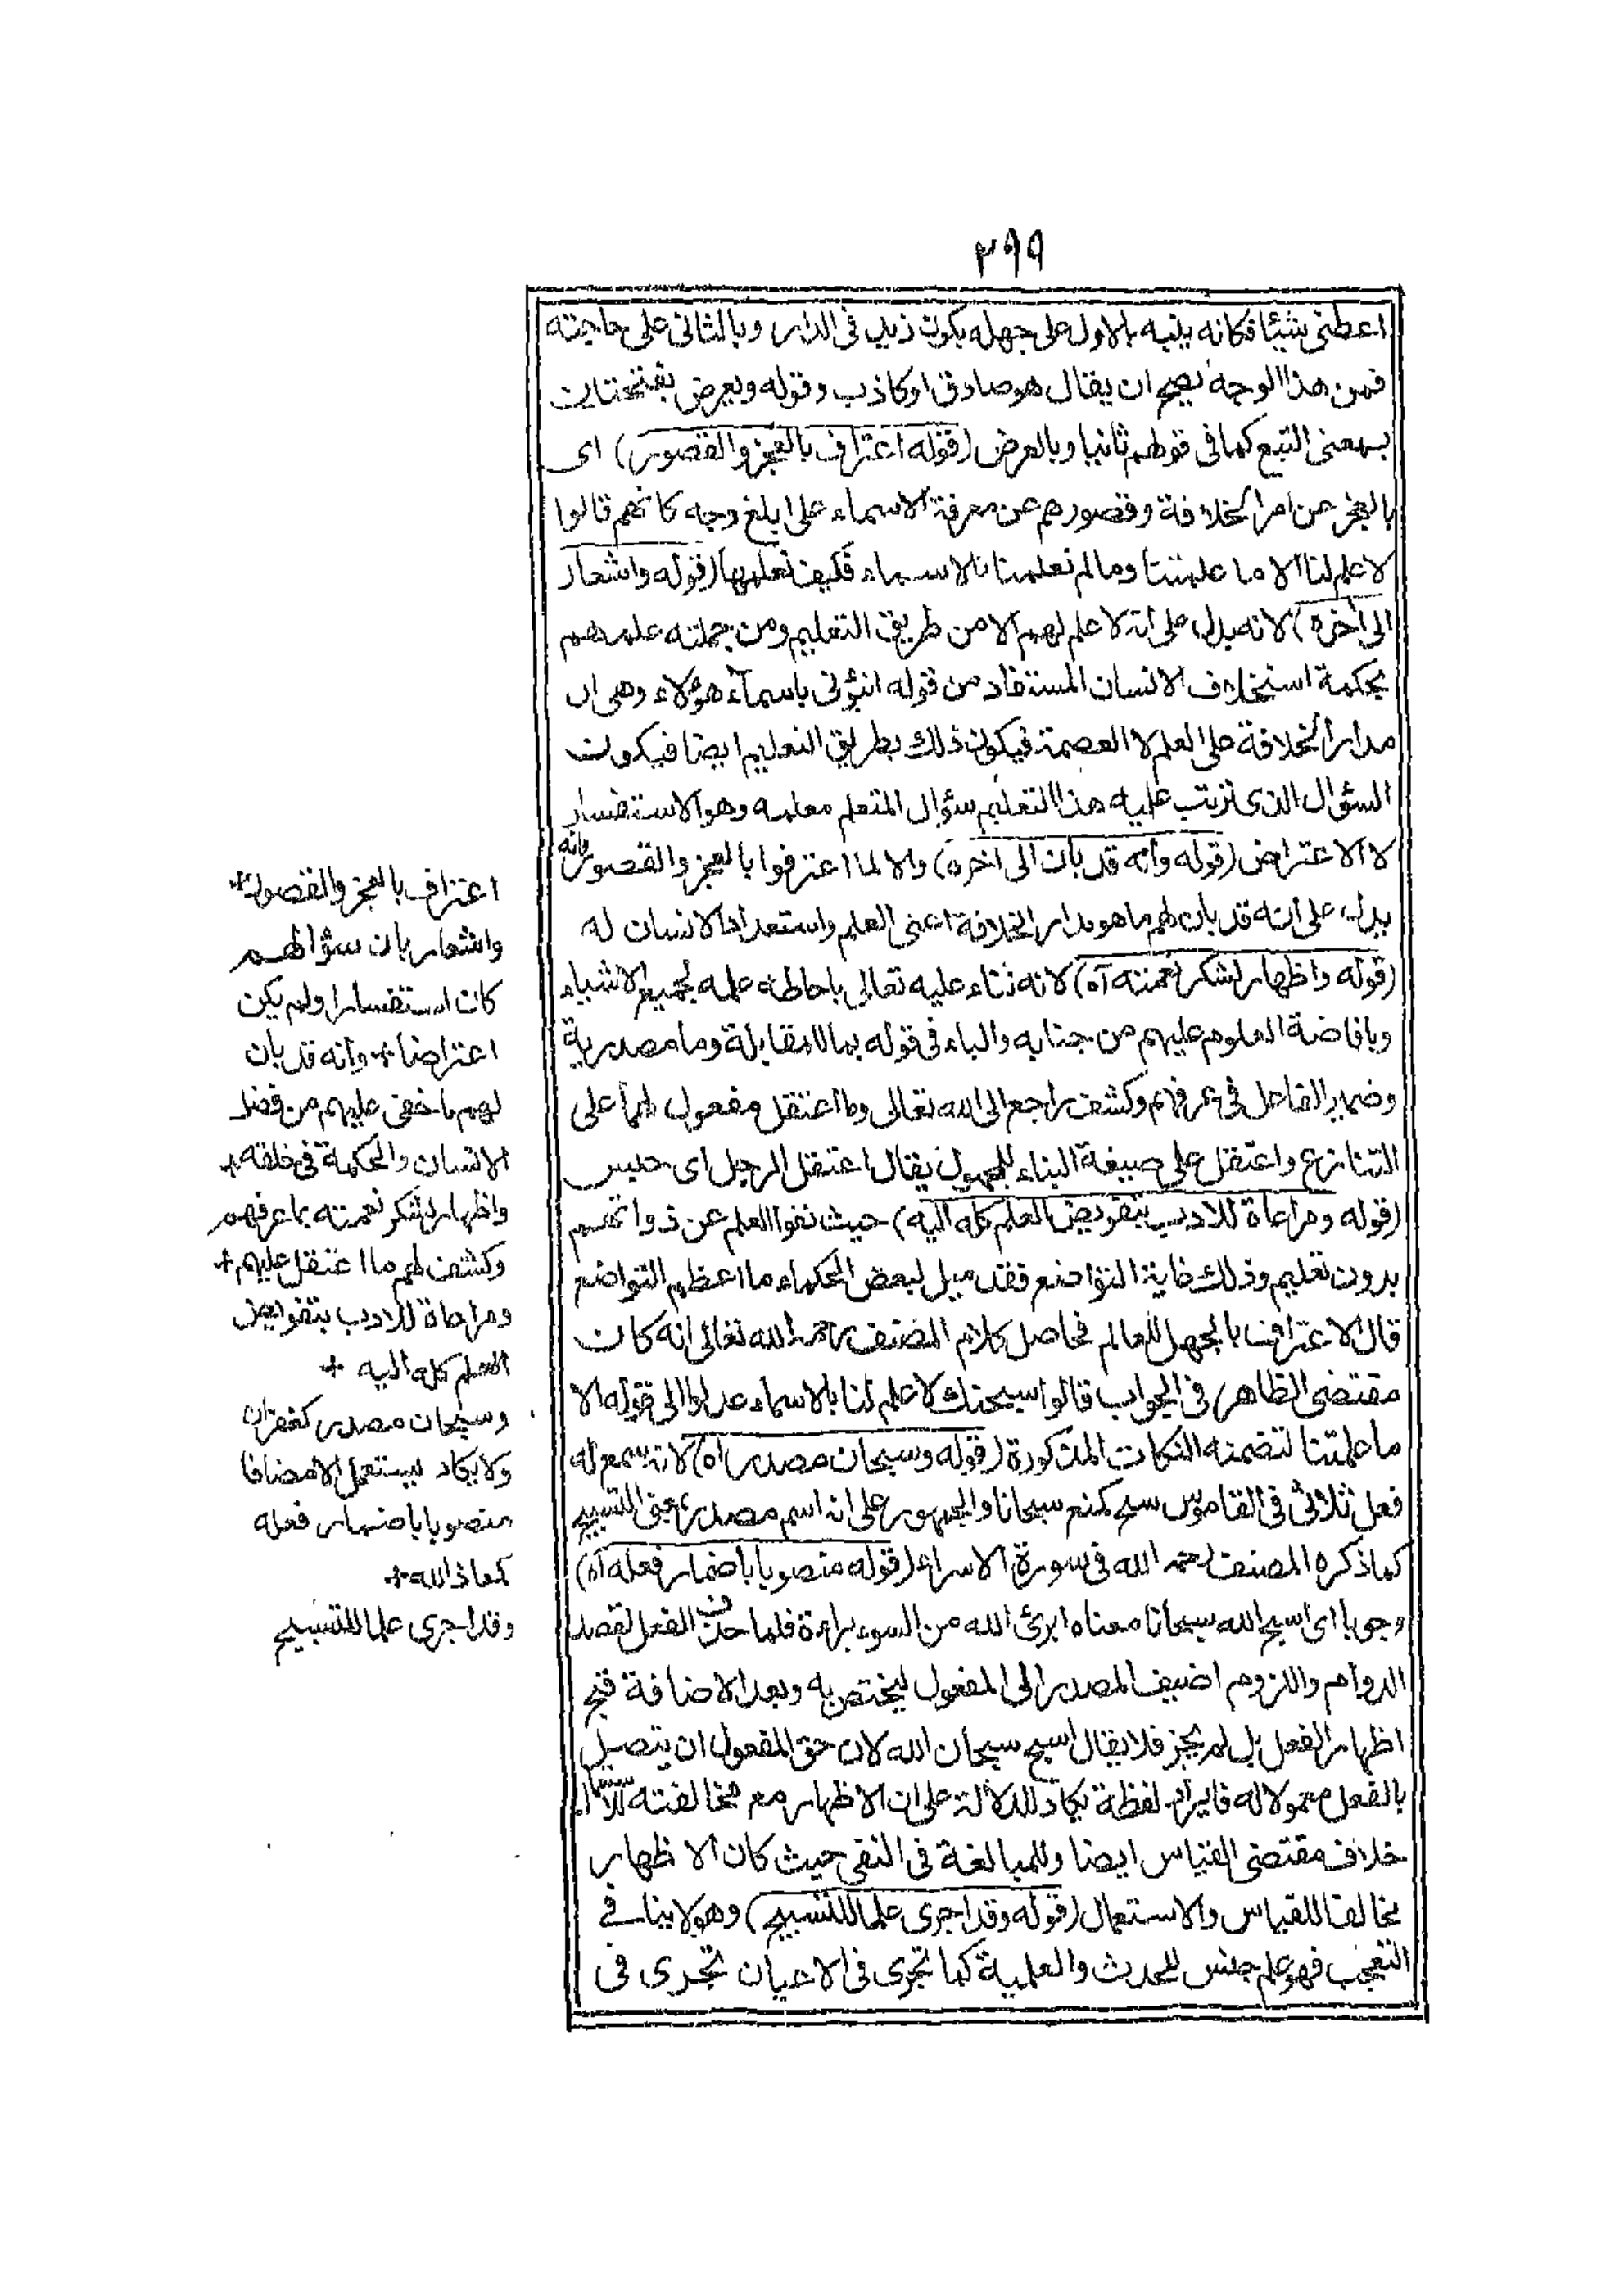 ٣٩٩
اعطنى شيئا فكانه ينبه بالاول على جهله بكون زيد فى الدار وبالثانى على حاجته
فمن هذا الوجه يصح ان يقال هو صادق او كاذب وقوله وبعرض بفتحتين
بمعنى التبع كما فى قولهم ثانيا وبالعرض (قوله اعتراف بالعجز والقصور) اى
بالعجز عن امر الخلافة وقصورهم عن معرفة الاسماء على ابلغ وجه كانهم قالوا
لا علم لنا الا ما علمتنا وما لم تعلمنا بالاسماء فكيف نعلمها (قوله واشعار
الى آخره) لانه يدل على انه لا علم لهم الا من طريق التعليم ومن جملته علمهم
بحكمة استخلاف الانسان المستفاد من قوله انبؤنى باسمآء هؤلاء وهى ان
مدار الخلافة على العلم لا العصمة فيكون ذلك بطريق التعليم ايضا فيكون
السؤال الذى ترتب عليه هذا التعليم سؤال المتعلم معلمه وهو الاستفسار
لا الاعتراض (قوله وأنه قد بان الى آخره) والا لما اعترفوا بالعجز والقصور فانه
يدل على انه قد بان لهم ما هو مدار الخلافة اعنى العلم واستعداد الانسان له
(قوله واظهار لشكر نعمته آه) لانه ثناء عليه تعالى باحاطة علمه لجميع الاشياء
وبافاضة العلوم عليهم من جنابه والباء فى قوله بما للمقابلة وما مصدرية
وضمير الفاعل فى عرفهم وكشف راجع الى الله تعالى وما اعتقل مفعول لهما على
التنازع واعتقل على صيغة البناء للمجهول يقال اعتقل الرجل اى حبس
(قوله ومراعاة للادب بتفويض العلم كله اليه) حيث نفوا العلم عن ذواتهم
بدون تعليم وذلك غاية التواضع فقد قيل لبعض الحكماء ما اعظم التواضع
قال الاعتراف بالجهل للعالم فحاصل كلام المصنف رحمه الله تعالى انه كان
مقتضى الظاهر فى الجواب قالوا سبحنك لا علم لنا بالاسماء عدلوا الى قوله الا
ما علمتنا لتضمنه النكات المذكورة (قوله وسبحان مصدر آه) لانه سمع له
فعل ثلاثى فى القاموس سبح كمنع سبحانا والجمهور على انه اسم مصدر بمعنى التسبيح
كما ذكره المصنف رحمه الله فى سورة الاسراء (قوله منصوبا باضمار فعله آه)
وجوبا اى اسبح الله سبحانا معناه ابرئ الله من السوء براءة فلما حذف الفعل لقصد
الدوام واللزوم اضيف المصدر الى المفعول ليختص به وبعد الاضافة قبح
اظهار الفعل بل لم يجز فلا يقال اسبح سبحان الله لان حق المفعول ان يتصل
بالفعل معمولا له فايراد لفظة يكاد للدلالة على ان الاظهار مع مخالفته للاستعمال
خلاف مقتضى القياس ايضا وللمبالغة فى النفى حيث كان الاظهار
مخالفا للقياس والاستعمال (قوله وقد اجرى علما للتسبيح) وهو لا ينافى
التعجب فهو علم جنس للحدث والعلمية كما تجرى فى الاعيان تجرى فى
اعتراف بالعجز والقصور+
واشعار بان سؤالهم
كان استفسارا ولم يكن
اعتراضا + وانه قد بان
لهم ما خفى عليهم من فضل
الانسان والحكمة فى خلقه +
واظهار لشكر نعمته بما عرفهم
وكشف لهم ما اعتقل عليهم +
ومراعاة للادب بتفويض
العلم كله اليه +
وسبحان مصدر كغفران
ولا يكاد يستعمل الا مضافا
منصوبا باضمار فعله
كمعاذ الله +
وقد اجرى علما للتسبيح